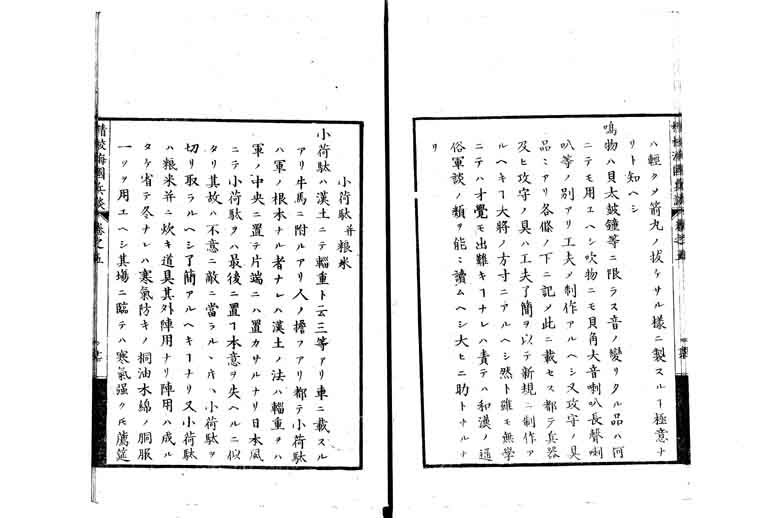 ハ輕クメ箭丸ノ拔ケサル樣ニ製スルヿ極意ナ
リト知ヘシ
鳴物ハ貝太皷鐘等ニ限ラス音ノ變リタル品ハ何
ニテモ用ユヘシ吹物ニモ貝角大音喇叭長聲喇
叭等ノ別アリ工夫メ制作アルヘシ又攻守ノ具
品ミアリ各條ノ下ニ記ノ此ニ載セス都テ兵器
及ヒ攻守ノ具ハ工夫了簡ヲ以テ新規ニ制作ア
ルヘキヿ大將ノ方寸ニアルヘシ然ト雖モ無學
ニテハ才覺モ出難キヿナレハ責テハ和漢ノ通
俗軍談ノ類ヲ能ミ讀ムヘシ大ヒニ助トナルナ
リ
精校海國兵談 卷之五
小荷駄并粮米
小荷駄ハ漢土ニテ輜重ト云三等アリ車ニ載スル
アリ牛馬ニ附ルアリ人ノ擔フアリ都テ小荷駄
ハ軍ノ根本ナル者ナレハ漢土ノ法ハ輜重ヲハ
軍ノ中央ニ置テ片端ニハ置カサルナリ日本風
ニテ小荷駄ヲハ最後ニ置ヿ本意ヲ失ヘルニ似
タリ其故ハ不意ニ敵ニ當ラルヽ片ハ小荷駄ヲ
切リ取ラルヘシ了簡アルヘキヿナリ又小荷駄
ハ粮米并ニ炊キ道具其外陣用ナリ陣用ハ成ル
タケ省テ冬ナレハ寒氣防キノ桐油木綿ノ胴服
一ツヲ用ユヘシ其場ニ臨テハ寒氣强ク氏薦筵
精校海國兵談 卷之五